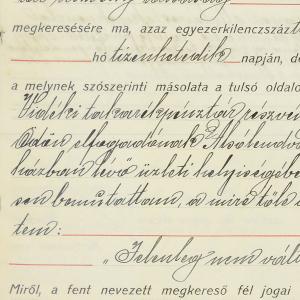 megkeresésére ma, azaz egyezerkilenczszázt
hó tizenhetedik napján, de
a melynek szószerinti másolata a tulsó oldalo
Vidéki takarékpénztár részvé
Ödön elfogadónak Alsólendva
házban lévő üzleti helyiségébe
sen bemutattam, a mire tőle
tem:
"Jelenleg nem vál
Miről, a fent nevezett megkereső fél jogai